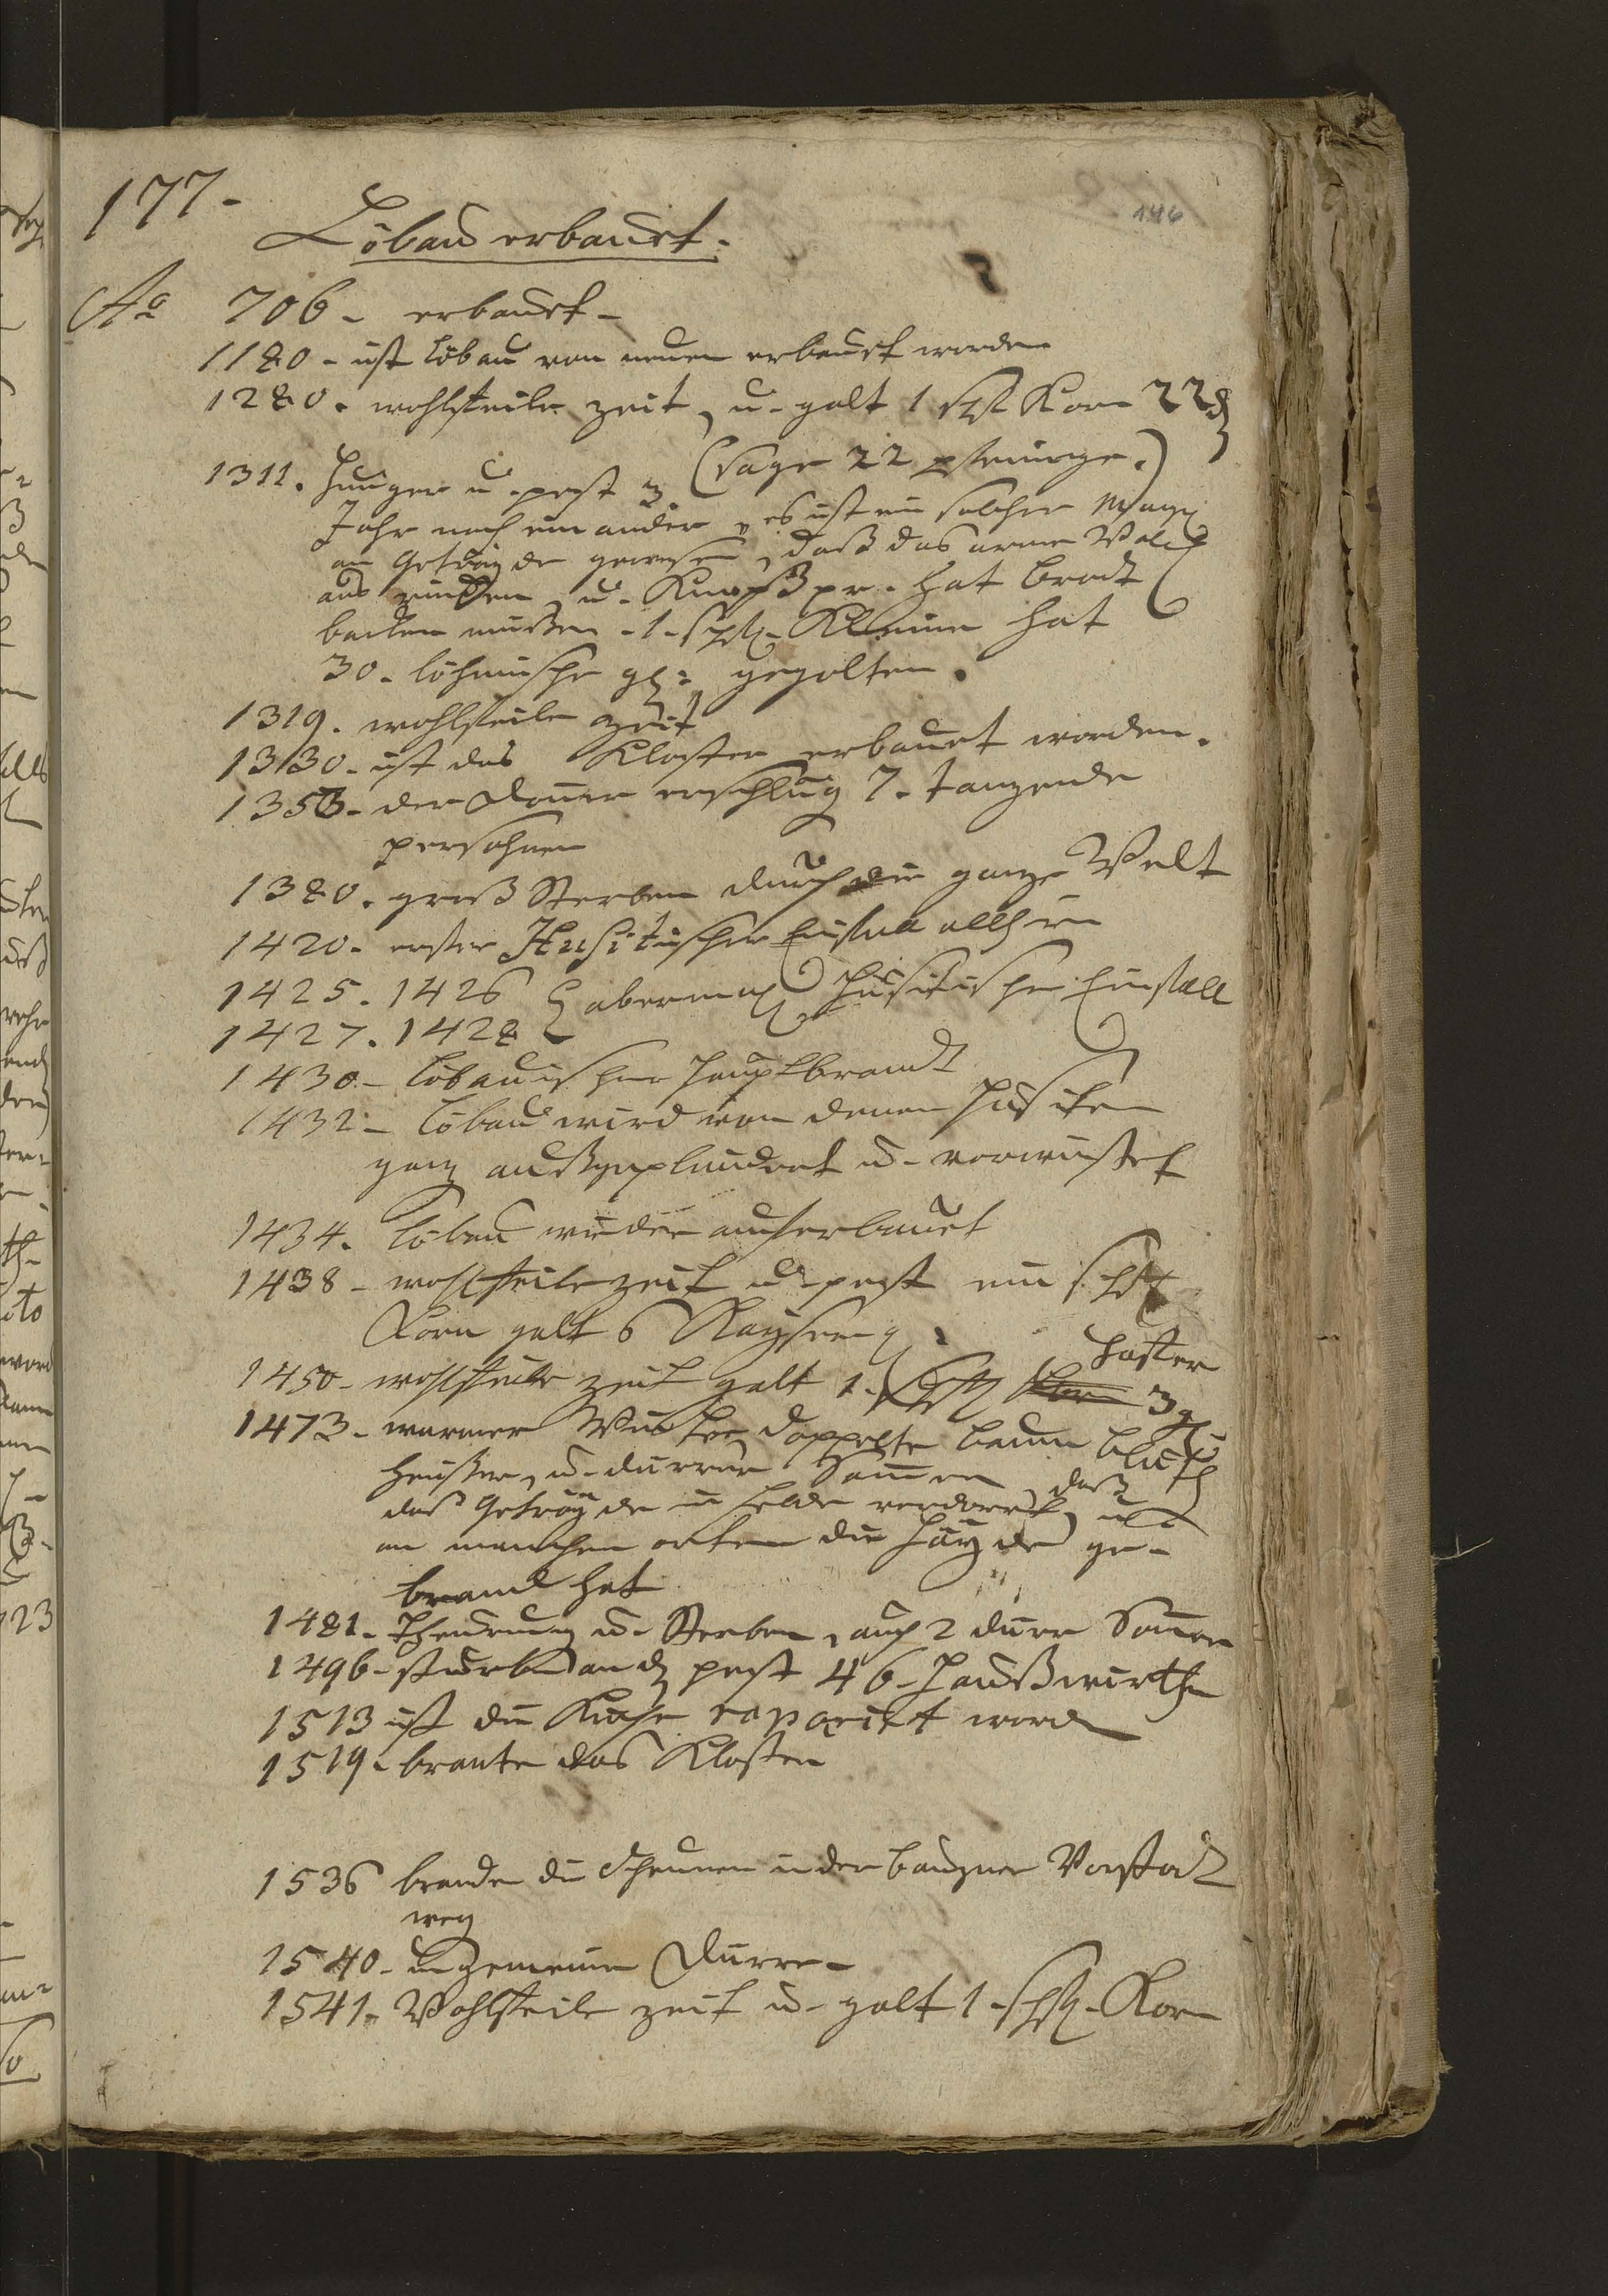 177.
146
Löbau erbauet.
Ao 706. erbauet.
1180. ist Löbau von neuen erbauet worden
1280. wohlfeile zeit, u. galt 1 sch Korn 22 ₰
(sage 22 pfennige.)
1311. Hunger u. pest 3
Jahr nach ein ander, es ist ein solcher
an Geträyde gewesen, daß das arme Volck
aus rinden, u. hat brodt
backen müßen. 1. schfl. hat
30. böhmische gl: gegolten.
1319. wohlfeile zeit
1330. ist das Kloster erbauet worden.
1353. der Doner erschlug 7. tanzende
persohnen
1380. groß Sterben durch die ganze Welt
1420. erster Husitischer Einfall allhier
1425. 1426 abermahl Husitischer Einfall
1427. 1428
1430. Löbauischer Hauptbrandt
1432. Löbau wird von denen Husiten
ganz außgeplündert u. verwüstet
1434. Löbau wieder auferbauet
1438. wohlfeile zeit u. pest ein schfl
Korn galt 6 Kayser g:
Haffer
1450. wohlfeile zeit galt 1. schfl Korn 3 gl
1473. warmer Winter, doppelte baum blüth
heußer, u. dürrer Somer, daß
das Geträyde in felde verdorret, u.
an manchen orten die Häyde ge-
brand hat
1481. Theurung u. Sterben, auch 2 dürr Somer
1496. sturben an d. pest 46. Haußwirthe
1513 ist die Kirche repariet word
1519. brante das Kloster
1536 branden die Scheunen in der bauzner Vorstadt
weg
1540. ungemeine Dürre.
1541. Wohlfeile zeit u. galt 1. schfl. Korn